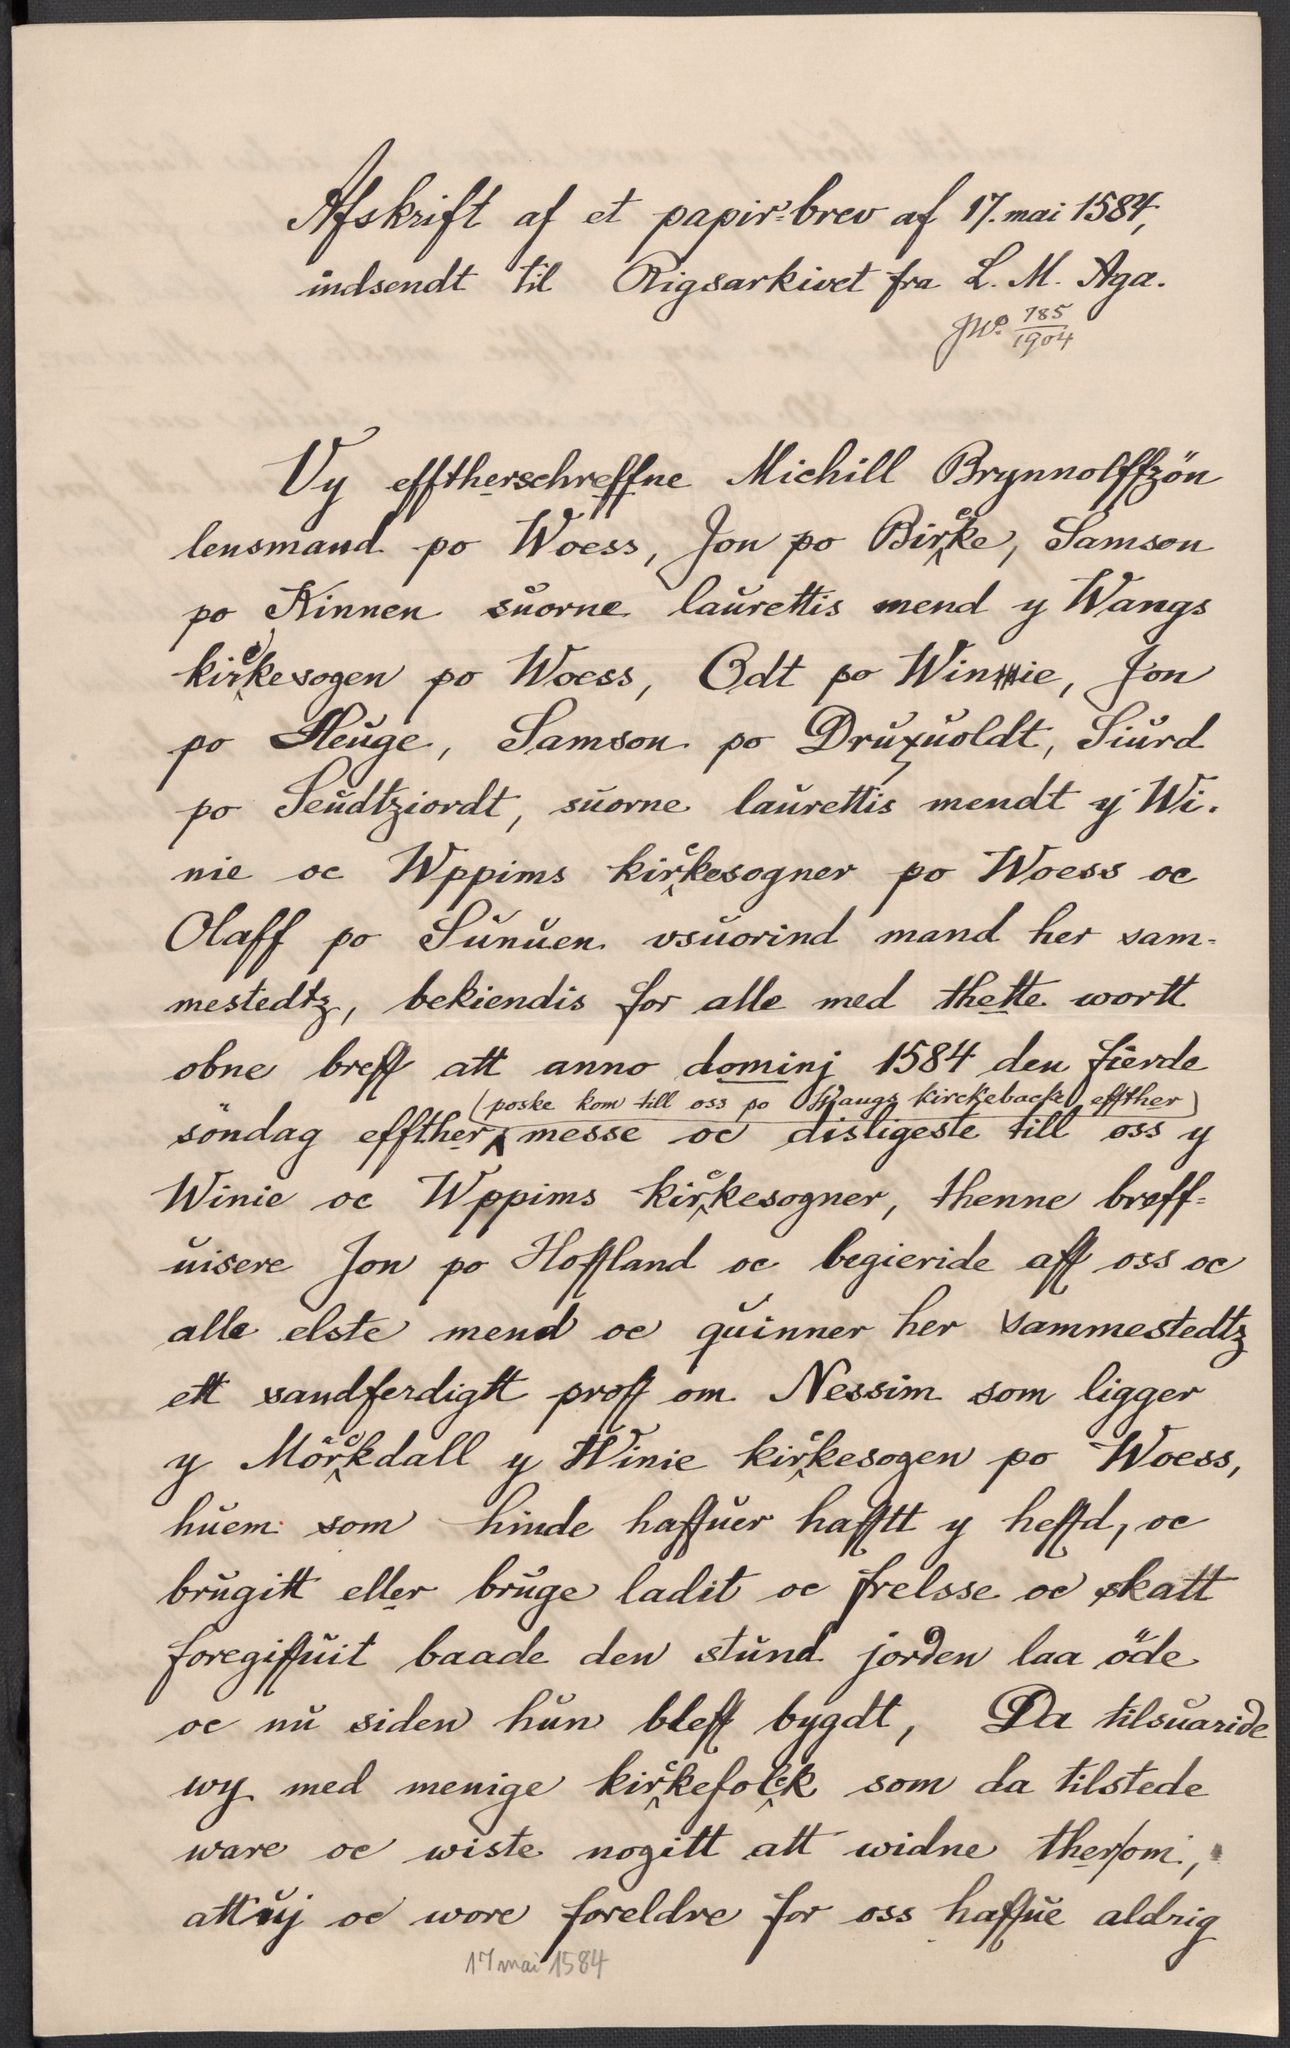 Afskrift af et papir-brev af 17. mai 1584,
indsendt til Rigsarkivet fra L. M. Aga.
JNo. 785/1904
Vy efftherschreffne Michill Brynnolffzön
lensmand po Woess, Jon po Bircke, Samson
po Kinnen suorne laurettis mend y Wangs
kirckesogen po Woess, Odt po Winie, Jon
po Heuge, Samson po Druxuoldt, Siurd
po Seudtziordt, suorne laurettis mendt y Wi-
nie oc Wppims kirckesogner po Woess oc
Olaff po Sunuen vsuorind mand her sam-
mestedtz, bekiendis for alle med thette wortt
obne breff att anno dominj 1584 den fierde
(poske kom till oss po Waugs kirckebacke effther)
söndag effther messe oc disligeste till oss y
Winie oc Wppims kirckesogner, thenne breff-
uisere Jon po Hoffland oc begieride aff oss oc
alle elste mend oc quinner her sammestedtz
ett sandferdigtt proff om Nessim som ligger
y Mörckdall y Winie kirckesogen po Woess,
huem som hinde haffuer hafftt y heffd, oc
brugitt eller bruge ladit oc frelsse oc skatt
foregiffuit baade den stund jorden laa öde
oc nu siden hun bleff bygdt, Da tilsuaride
wy med menige kirckefolck som da tilstede
ware oc wiste nogitt att widne ther/om,
att uj oc wore foreldre for oss haffue aldrig
17 mai 1584